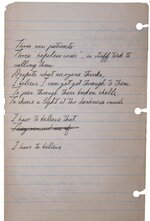 These are patients
These 'hopeless cases', as staff like to
calling them.
Despite what everyone thinks,
I believe I can yet get through to them
To peer through their broken shells
To shine a light at the darkness inside
I have to believe that
I have to believe